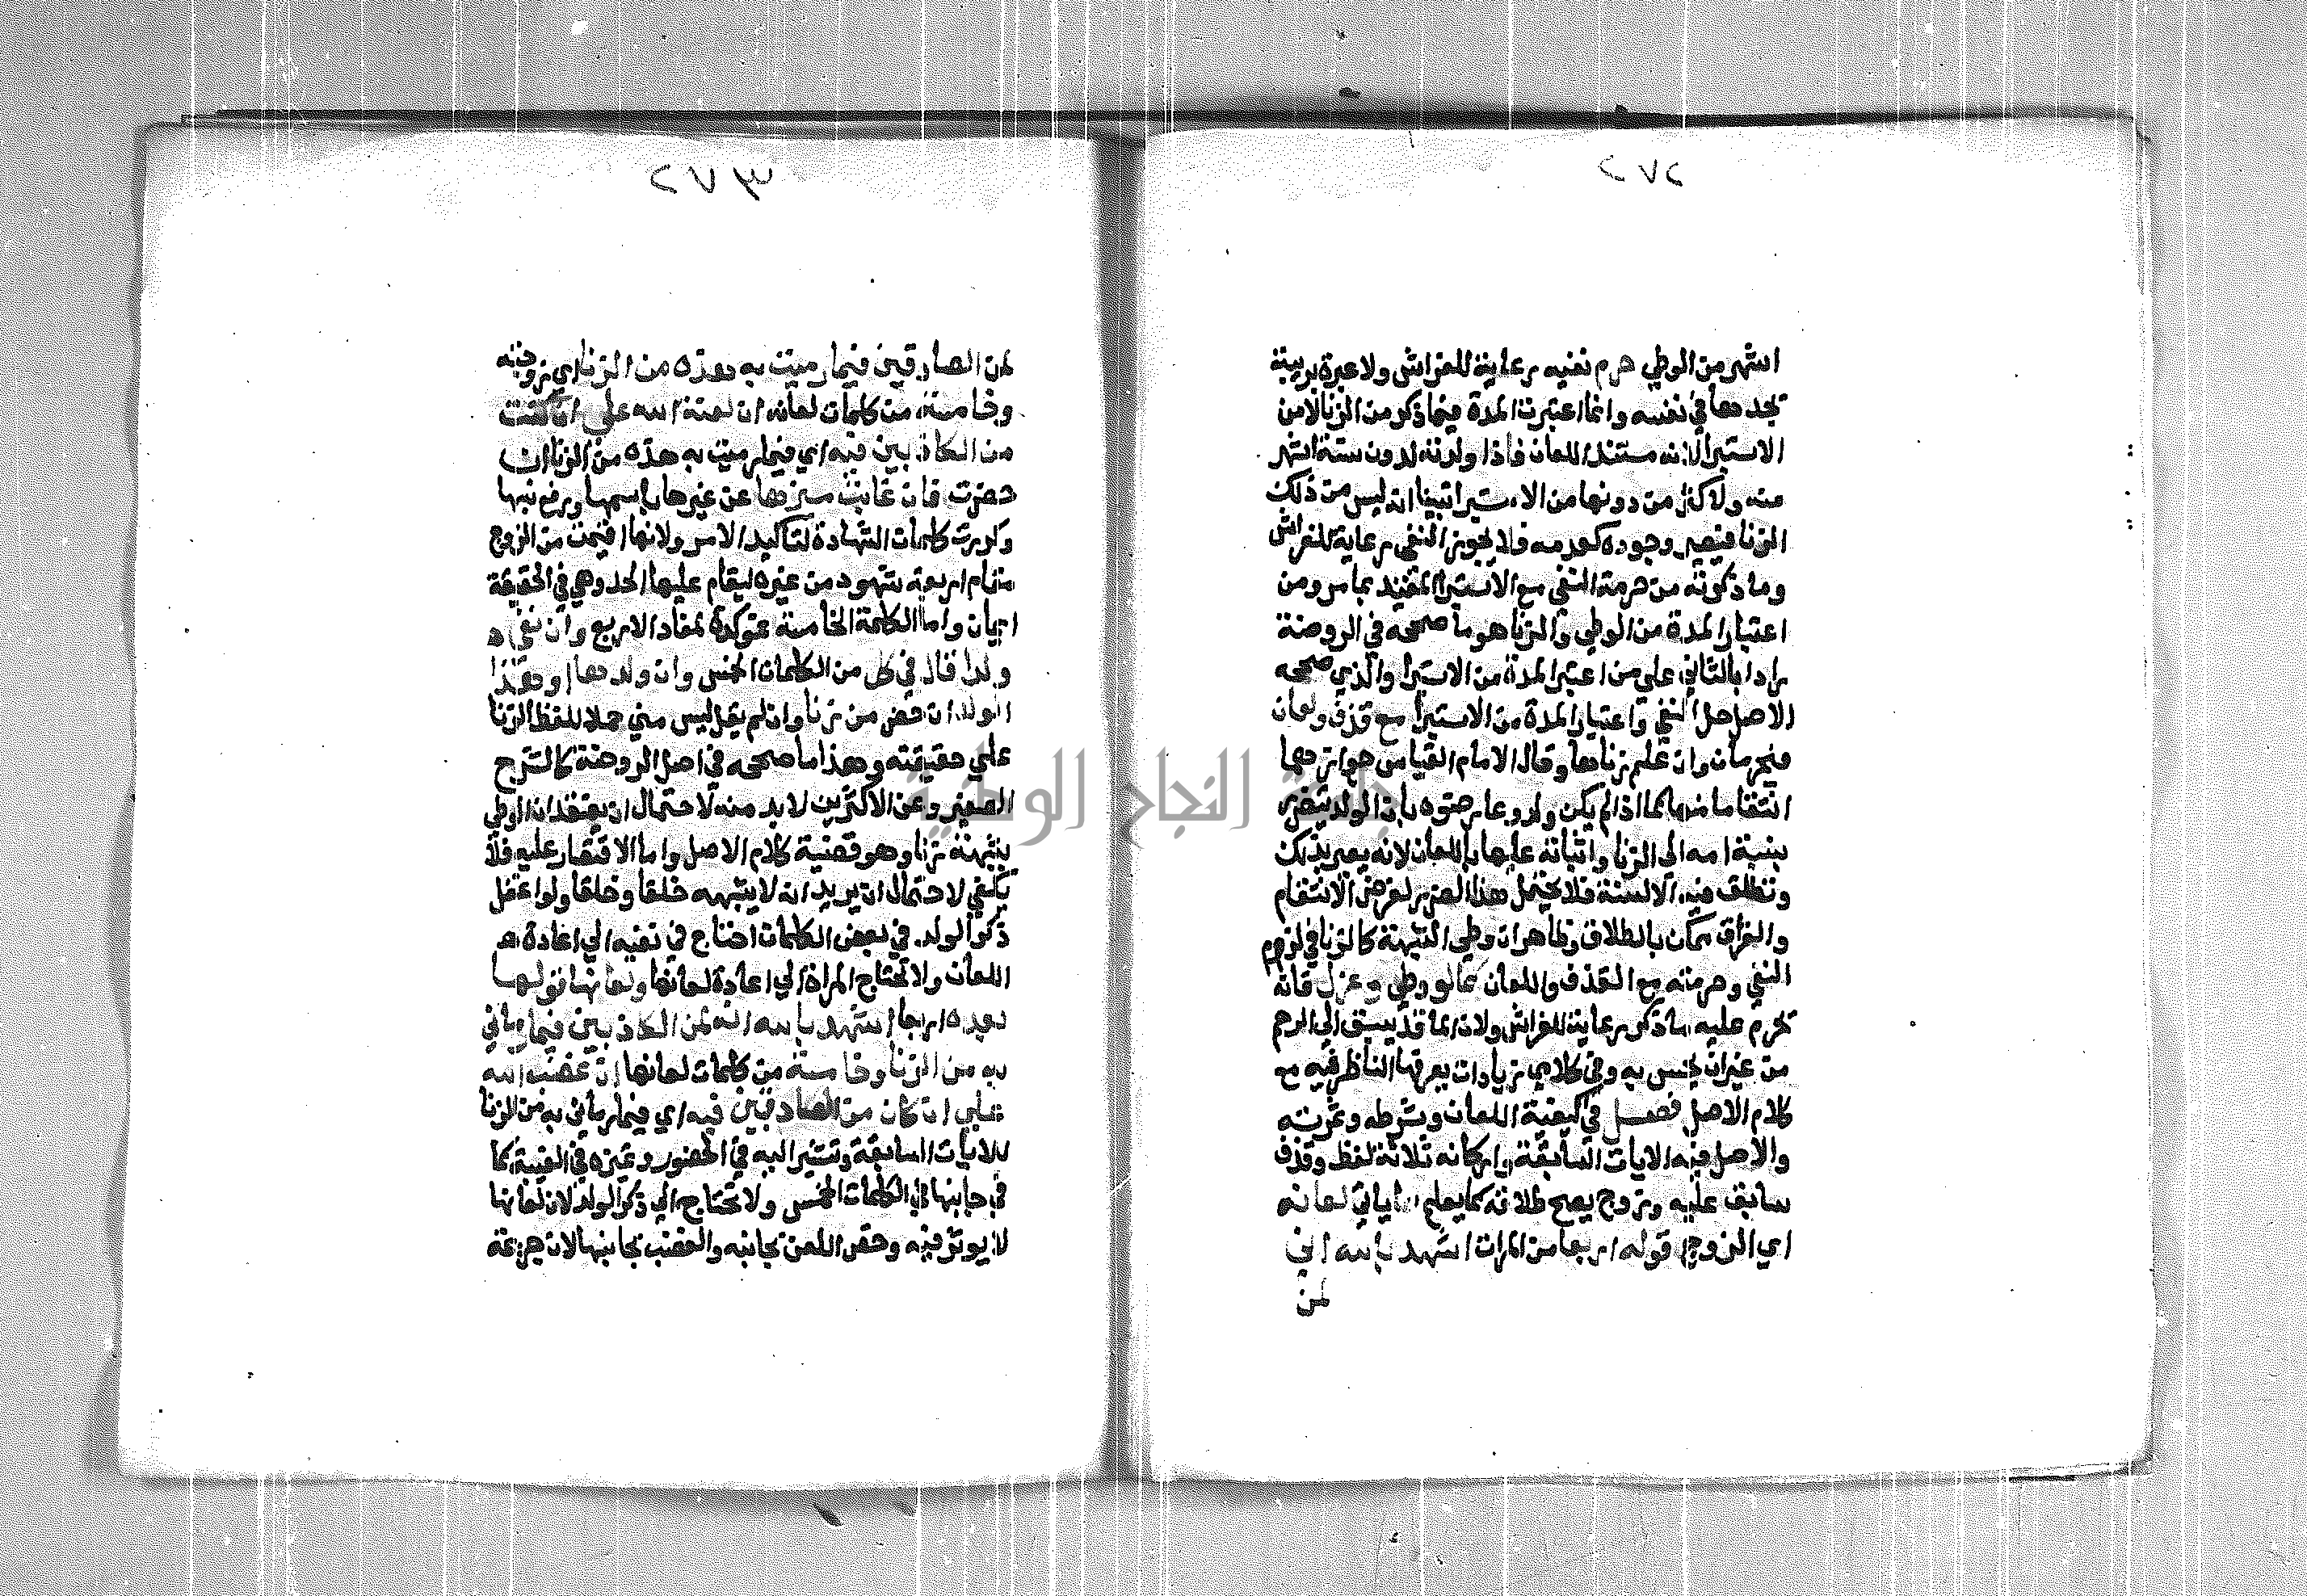 ٢٧٢
اشهر من الوطي حرم نفيه رعاية للفراش ولا عبرة بريبة
يجدها في نفسه وانما اعتبرت المدة فيما ذكر من الزنا لا من
الاستبرا لانه مستند اللعان فاذا ولدته لدون ستة اشهر
منه ولاكثر من دونها من الاستبرا تبينا انه ليس من ذلك
الزنا فيصير وجوده كعدمه فلا يجوز النفي رعاية للفراش
وما ذكرته من حرمة النفي مع الاستبرا المقيد بما مر ومن
اعتبار المدة من الوطي والزنا هو ما صححه في الروضة
رادا بالثاني علي من اعتبر المدة من الاستبرا والذي صححه
الاصل حل النفي واعتبار المدة من الاستبرا مع قذف ولعان
فيحرمان وان علم زناها وقال الامام القياس جوازهما
انتقاما منها كما اذا لم يكن ولد وعارضوه بان الولد يتضرر
بنسبة امه الي الزنا واثباته عليها باللعان لانه يعير بذلك
وتطلق فيه الالسنة فلا يحتمل هذا الضرر لغرض الانتقام
والفراق ممكن بالطلاق وظاهر ان وطي الشبهة كالزنا في لزوم
النفي وحرمته مع القذف واللعان كما لو وطي وعزل فانه
يحرم عليه ما ذكر رعاية للفراش ولان الما قد يسبق الي الرحم
من غير ان يحس به وفي كلامي زيادات يعرفها الناظر فيه مع
كلام الاصل فصل في كيفية اللعان وشرطه وثمرته
والاصل فيه الايات السابقة واركانه ثلاثة لفظ وقذف
سابق عليه وزوج يصح طلاقه كما يعلم مما ياتي لعانه
اي الزوج قوله اربعا من المرات اشهد بالله اني
لمن
٢٧٣
لمن الصادقين فيما رميت به هذه من الزنا اي زوجته
وخامسة من كلمات لعانه ان لعنة الله علي ان كنت
من الكاذبين فيه اي فيما رميت به هذه من الزنا ان
حضرت فان غابت ميزها عن غيرها باسمها ورفع نسبها
وكررت كلمات الشهادة لتاكيد الامر ولانها اقيمت من الزوج
مقام اربعة شهود من غيره ليقام عليها الحد وهي في الحقيقة
ايمان واما الكلمة الخامسة فموكدة لمفاد الاربع وان نفي
ولدا قال في كل من الكلمات الخمس وان ولدها او هذا
الولد ان حضر من زنا وان لم يقل ليس مني حملا للفظ الزنا
علي حقيقته وهذا ما صححه في اصل الروضة كالشرح
الصغير وعن الاكثرين لا بد منه لاحتمال ان يعتقد ان الوطي
بشبهة زنا وهو قضية كلام الاصل واما الاقتصار عليه فلا
يكفي لاحتمال ان يريد انه لا يشبهه خلقا وخلقا ولو اغفل
ذكر الولد في بعض الكلمات احتاج في نفيه الي اعادة
اللعان ولا تحتاج المراة الي اعادة لعانها ولعانها قولها
بعده اربعا اشهد بالله انه لمن الكاذبين فيما رماني
به من الزنا وخامسة من كلمات لعانها ان غضب الله
علي ان كان من الصادقين فيه اي فيما رماني به من الزنا
للايات السابقة وتشير اليه في الحضور وتميزه في الغيبة كما
في جانبها في الكلمات الخمس ولا تحتاج الي ذكر الولد لان لعانها
لا يوثر فيه وخص اللعن بجانبه والغضب بجانبها لان جريمة
جامعة النجاح الوطنية